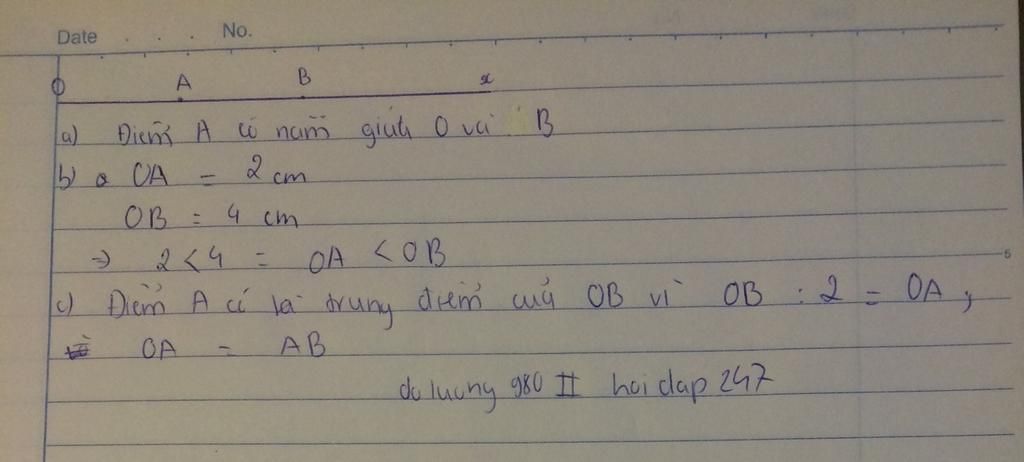 Date No.
O A B x
a) Điểm A có nằm giữa O và B
b) OA = 2 cm
OB = 4 cm
=> 2 < 4 = OA < OB
c) Điểm A có là trung điểm của OB vì OB : 2 = OA,
OA = AB
do luong 980 II hoi dap 247